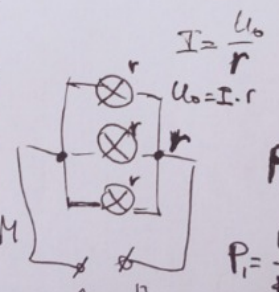 I = u₀/r
r
u₀ = I · r
r
r
r
M
P₁ =